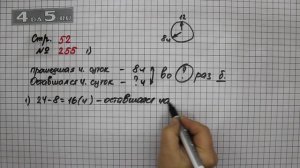 4 DA 5.RU
Стр. 52
№ 255 1)
12
8ч
прошедшая ч. суток - 8ч
Оставшаяся ч. суток - ?ч
во ? раз б.
1) 24-8=16(ч) - оставшаяся ча